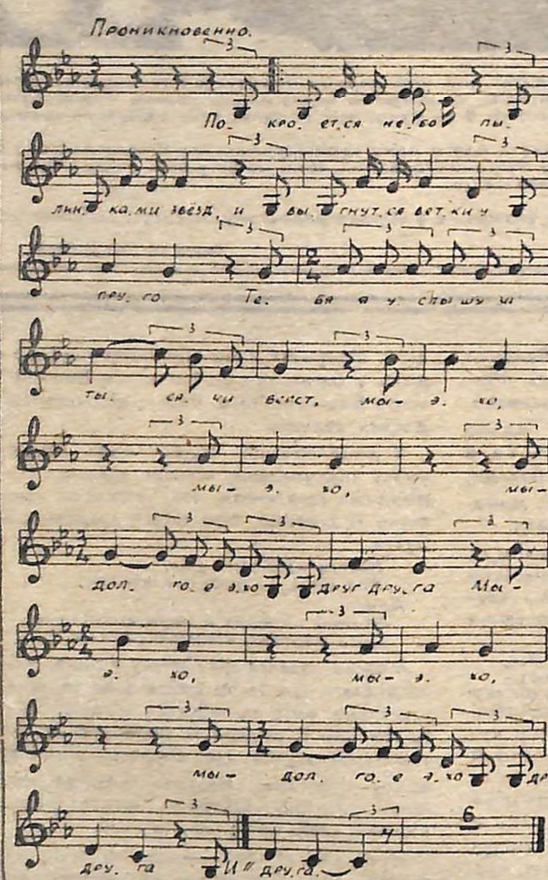 Проникновенно.
По- кро. ет.ся не.бо пы.
лин. ка.ми звёзд, и вы. гнут.ся вет.ки у
пру. го. Те. бя я у. слы шу за
ты. ся. чи вёрст, мы- э. хо,
мы- э. хо, мы-
дол. го. е э.хо друг дру.га Мы-
э. хо, мы- э. хо,
мы- дол. го. е э.хо др
дру. га И // дру.га.